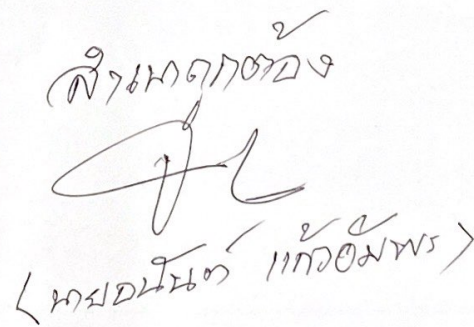 สำเนาถูกต้อง
(นายอนันต์ แก้วอัมพร)